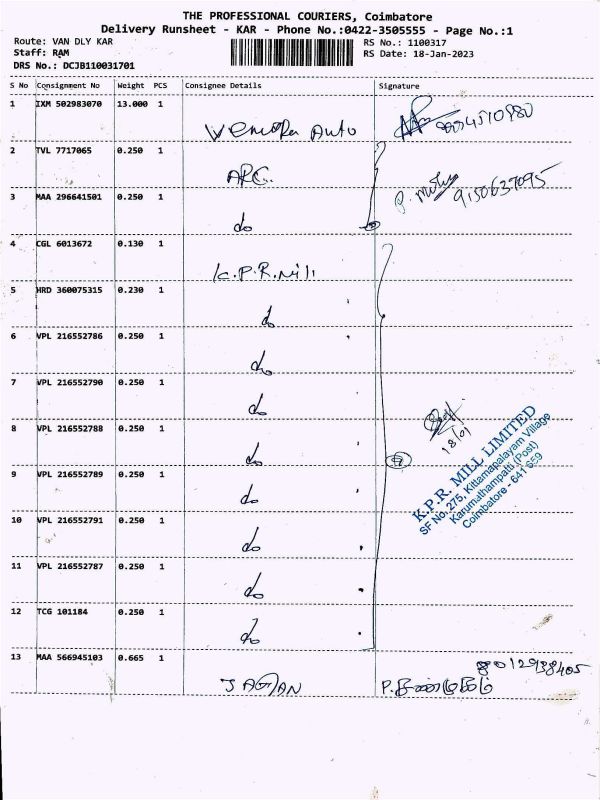 THE PROFESSIONAL COURIERS, Coimbatore
Delivery Runsheet - KAR - Phone No.:0422-3505555 - Page No.:1
Route: VAN DLY KAR
RS No.: 1100317
Staff: RAM
RS Date: 18-Jan-2023
DRS No.: DCJB110031701
S No Consignment No Weight PCS Consignee Details Signature
1 IXM 502983070 13.000 1 Auto
2 TVL 7717065 0.250 1 ARC.
3 MAA 296641501 0.250 1 do 9150637095
4 CGL 6013672 0.130 1 K.P.R.Mill
5 HRD 360075315 0.230 1 do
6 VPL 216552786 0.250 1 do
7 VPL 216552790 0.250 1 do
8 VPL 216552788 0.250 1 do 9
18/01
K.P.R. MILL LIMITED
SF No. 275, Kittampalayam Village
Karumathampatti (Post)
Coimbatore - 641 659
9 VPL 216552789 0.250 1 do
10 VPL 216552791 0.250 1 do
11 VPL 216552787 0.250 1 do
12 TCG 101184 0.250 1 do
13 MAA 566945103 0.665 1 JAGAN 8012938405